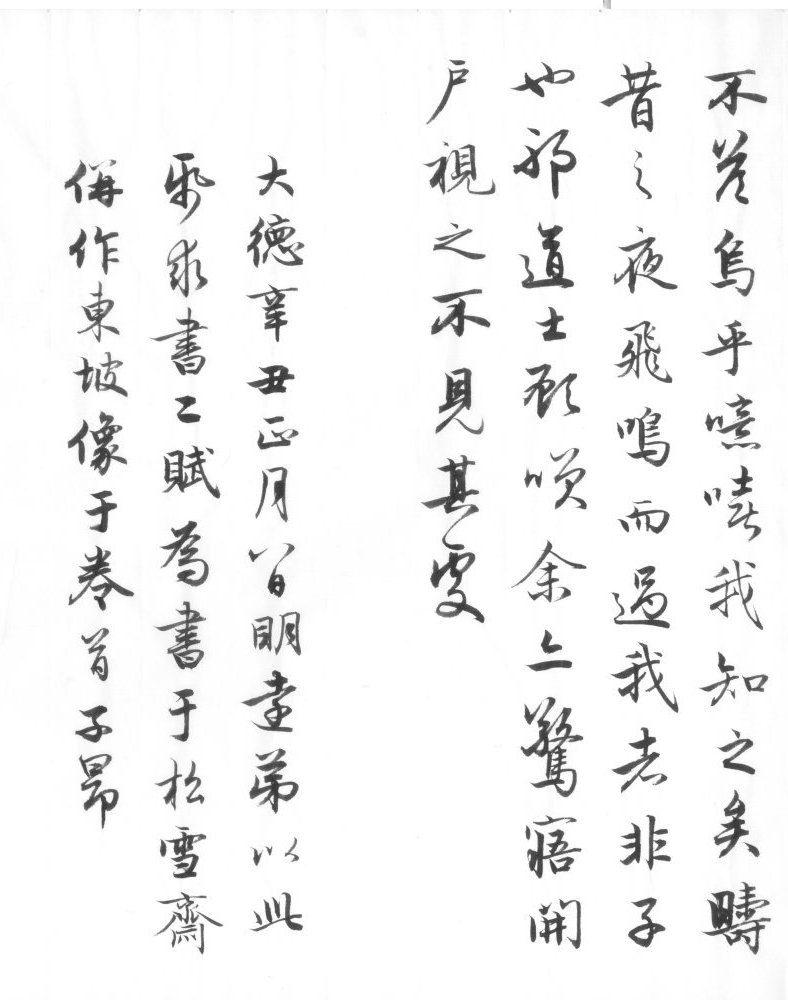 不答烏乎噫嘻我知之矣疇
昔之夜飛鳴而過我者非子
也邪道士顧嘆余亦驚寤開
戶視之不見其處
大德辛丑正月八日明遠弟以此
紙求書二賦為書于松雪齋
併作東坡像于卷首子昂